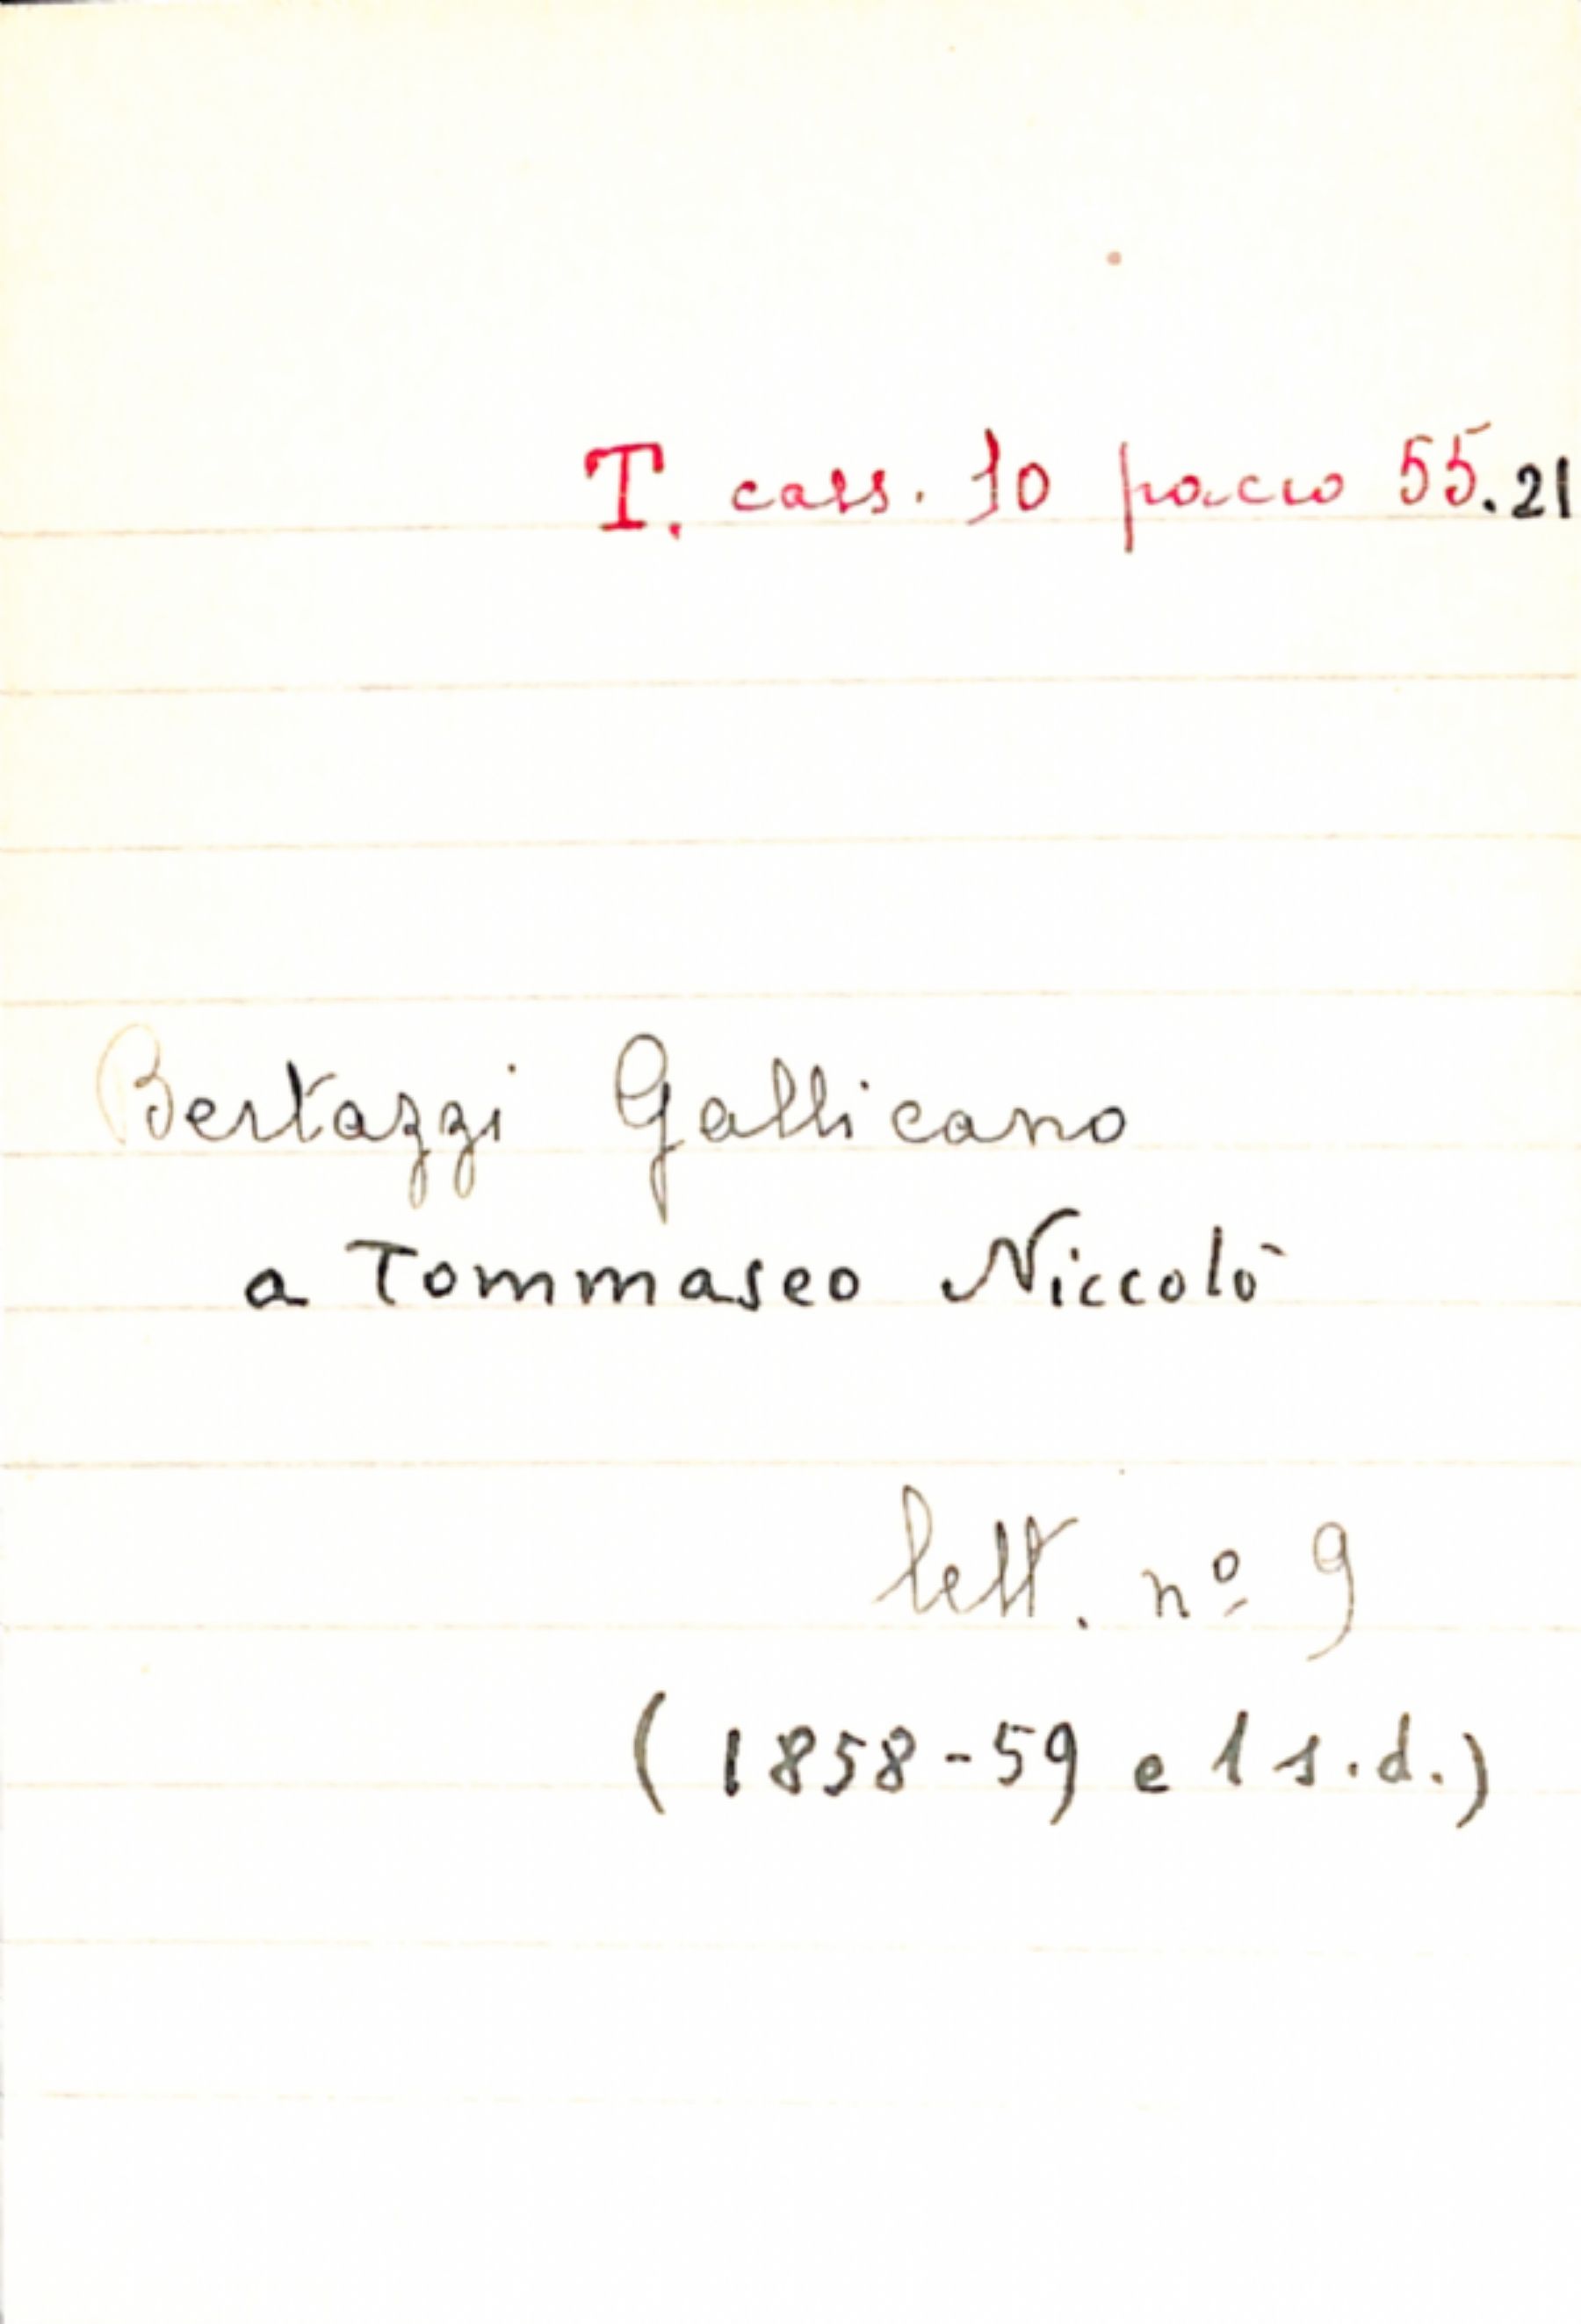 T. cass. 10 pacco 55.21
Bertazzi Gallicano
a Tommaseo Niccolò
lett. nº 9
(1858-59 e 1 s.d.)